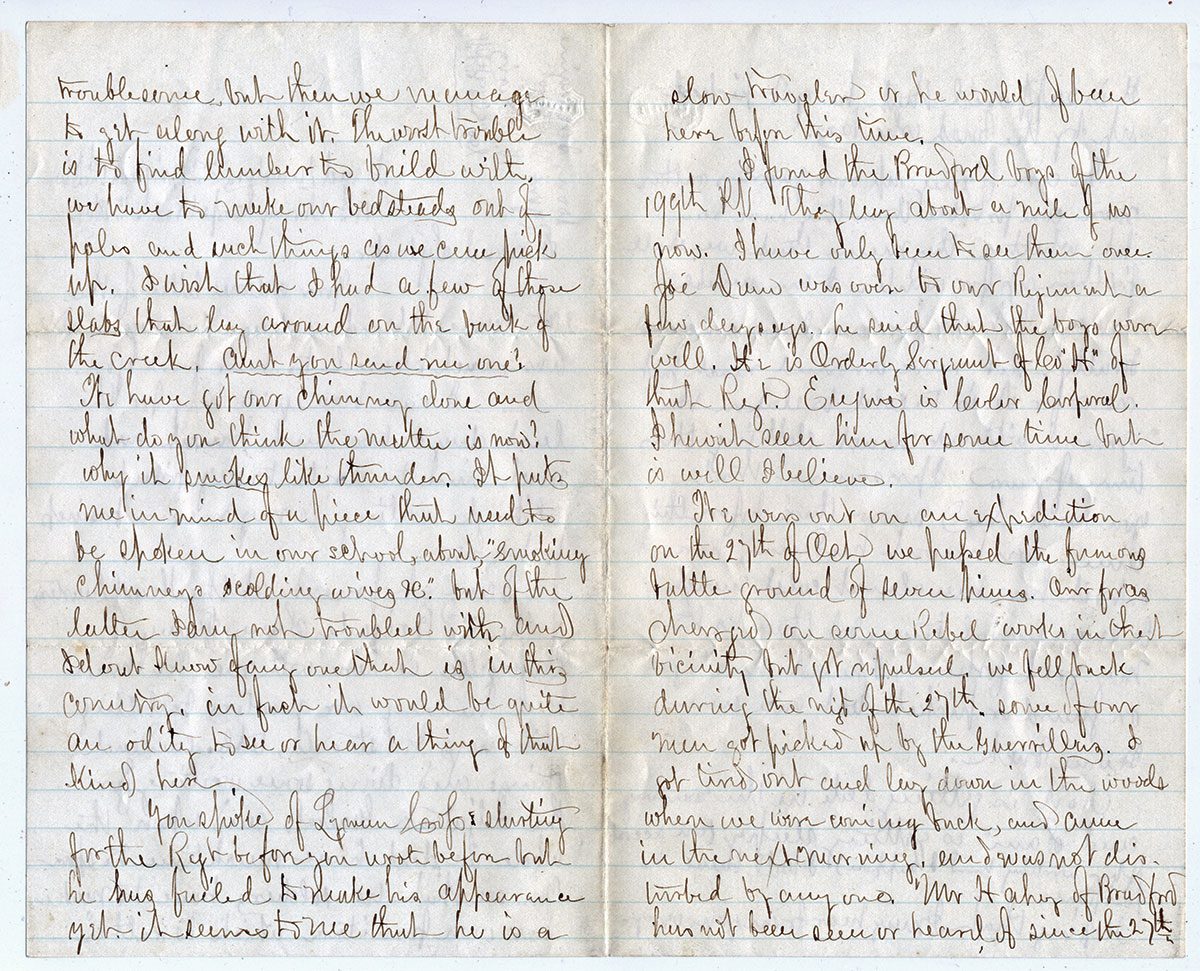 troublesome, but then we manage
to get along with it. The worst trouble
is to find lumber to build with,
we have to make our bedsteads out of
poles and such things as we can pick
up. I wish that I had a few of those
slabs that lay around on the bank of
the creek. Cant you send me one?
We have got our chimney done and
what do you think the matter is now?
why it smokes like thunder. It puts
me in mind of a piece that used to
be spoken in our school, about, "Smoking
chimneys scolding wives &c". but of the
latter I am not troubled with and
I dont know of any one that is in this
country. in fact it would be quite
an odity to see or hear a thing of that
kind here
You spoke of Lyman starting
for the Regt before you wrote before but
he has failed to make his appearance
yet. it seems to me that he is a
slow traveler or he would of been
here before this time.
I found the Bradford boys of the
199th P.V. They lay about a mile of us
now. I have only been to see them once.
Joe was over to our Regiment a
few days ago. he said that the boys were
well. He is Orderly Sergeant of Co "H" of
that Regt. Eugene is Color Corporal.
I havnt seen him for some time but
is well I believe.
We were out on an expedition
on the 27th of Oct, we passed the famous
battle ground of seven pines. Our forces
charged on some Rebel works in that
vicinity but got repulsed. we fell back
during the night of the 27th. some of our
men got picked up by the Guerrillers. I
got tired out and lay down in the woods
when we were coming back, and came
in the next morning, and was not dis-
turbed by any one. Mr of Bradford
has not been seen or heard of since the 27th